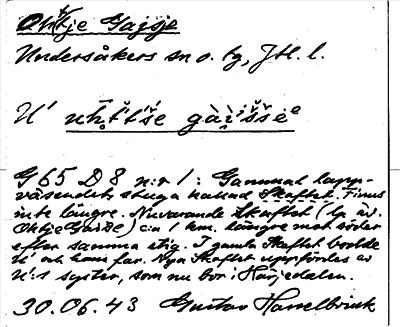 Ohtje Gajsje
Undersåkers sn o. tg, Jtl. l.
U' ùh̥t́t́še gàì̯šše
G 65 D 8 n:r 1: Gammal lapp-
väsendets stuga kallad Skaftet. Finns
inte längre. Nuvarande Skaftet (lp. äv.
Ohtje Gajsje) c:a 1 km. längre mot söder
efter samma stig. I gamla Skaftet bodde
U' och hans far. Nya Skaftet uppfördes av
U':s syster, som nu bor i Härjedalen.
30.06.43 Gustav Hasselbrink